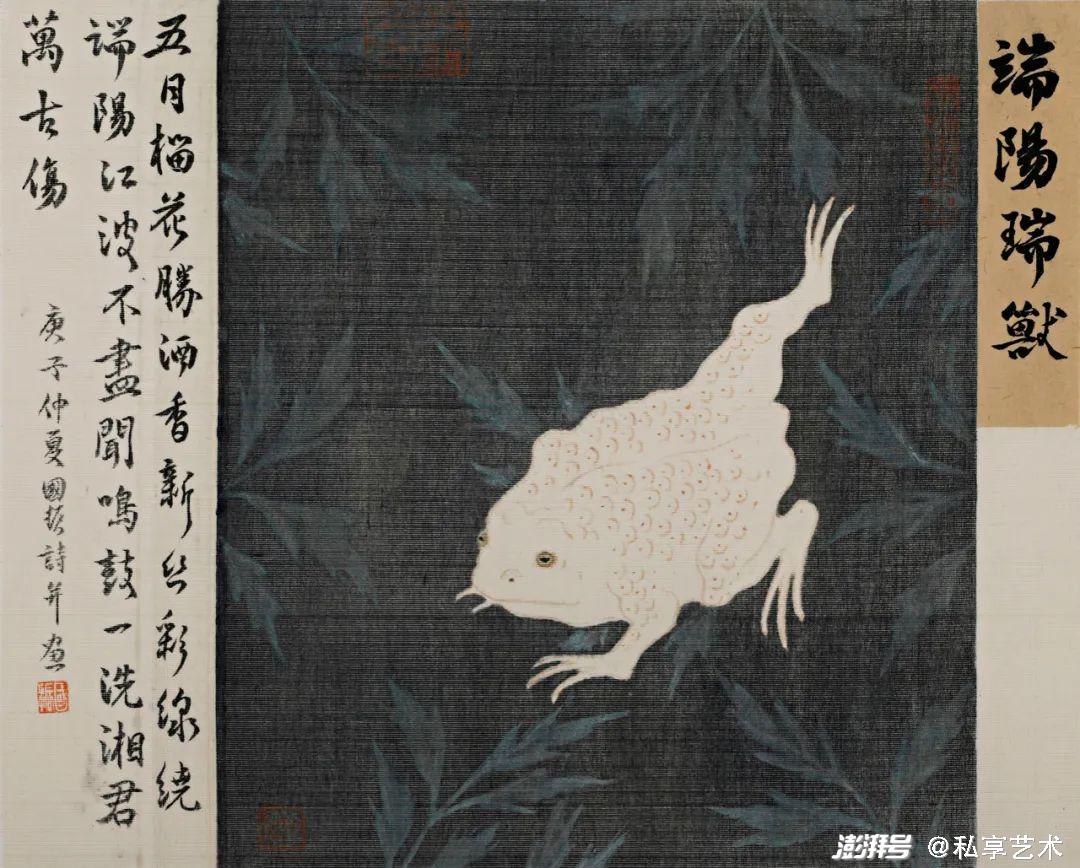 端陽瑞獸
五月榴花勝酒香新絲彩線繞
端陽江波不盡聞鳴鼓一洗湘君
萬古傷
庚子仲夏國 詩并畫
澎湃号 @私享艺术